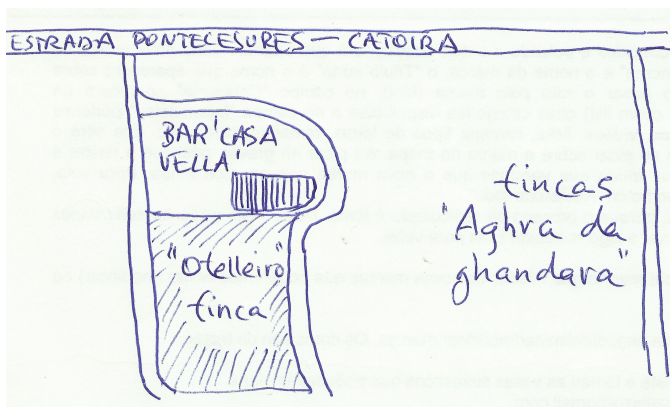 ESTRADA PONTECESURES — CATOIRA
BAR 'CASA
VELLA'
"Otelleiro"
finca
fincas
"Aghra da
ghandara"